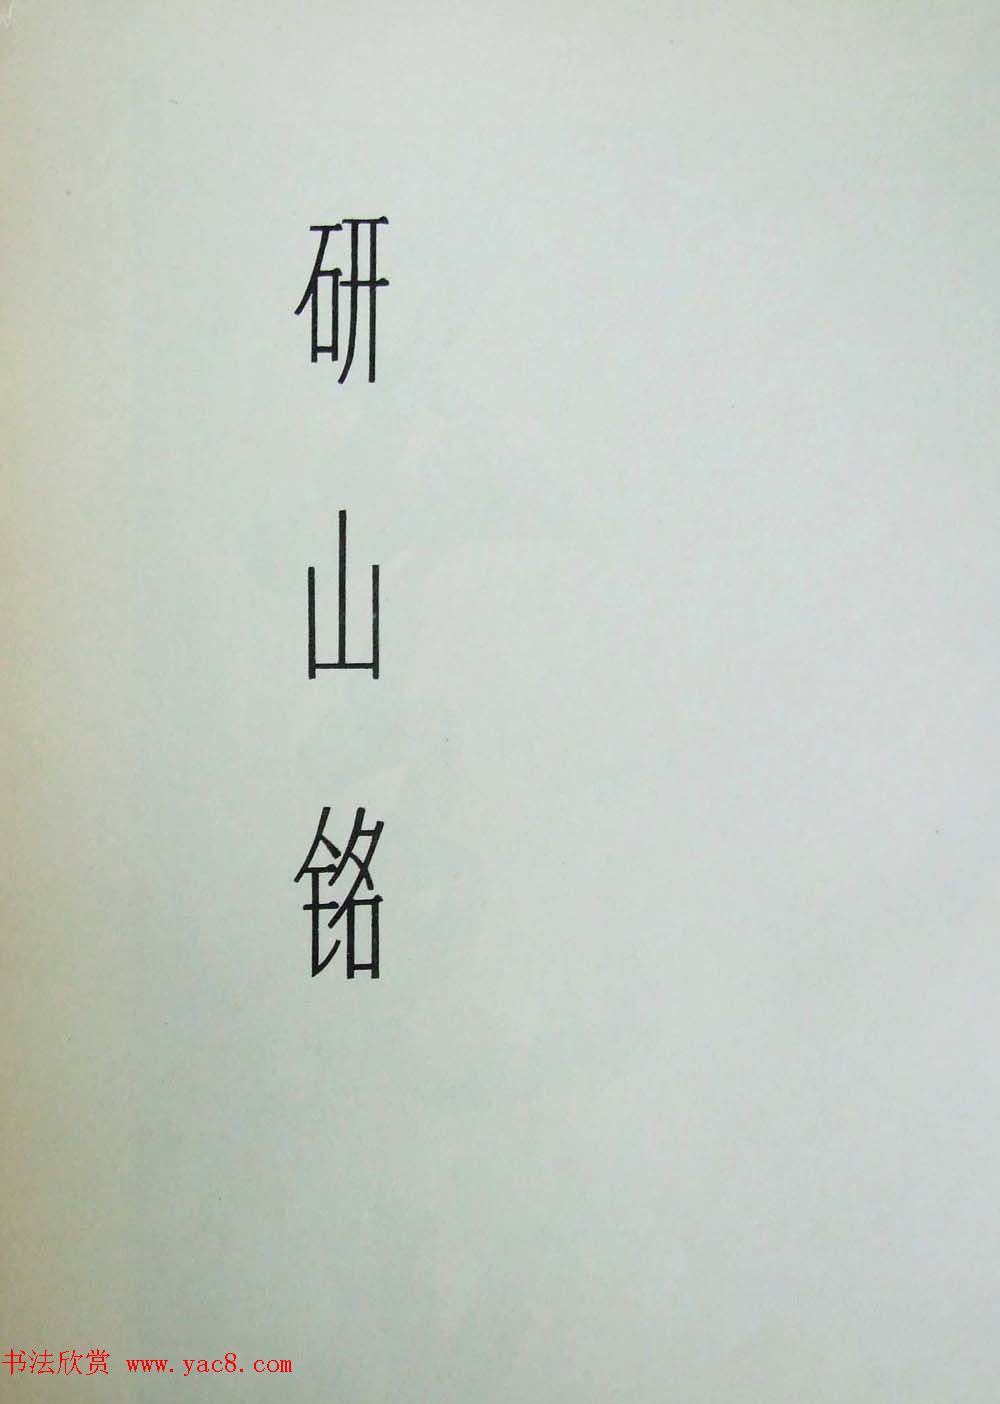 研山铭
书法欣赏 www.yac8.com